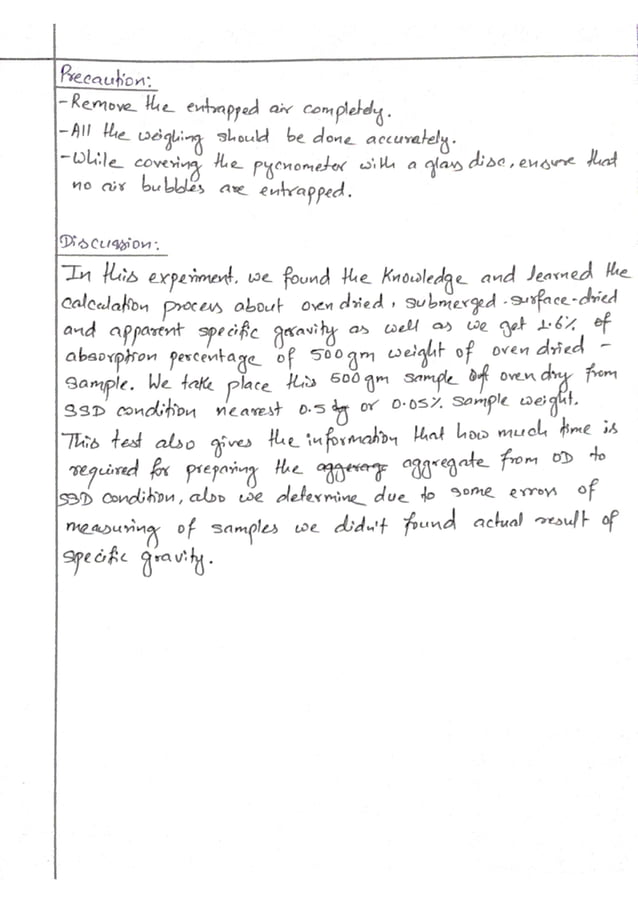 Precaution:
- Remove the entrapped air completely.
- All the weighing should be done accurately.
- While covering the pycnometer with a glass disc, ensure that
no air bubbles are entrapped.
Discussion:
In this experiment, we found the knowledge and learned the
calculation process about oven dried, submerged-surface-dried
and apparent specific garavity as well as we get 1.6% of
absorption percentage of 500gm weight of oven dried -
sample. We take place this 500gm sample of oven dry from
SSD condition nearest 0.5 g or 0.05% sample weight.
This test also gives the information that how much time is
required for preparing the aggregate from OD to
SSD condition, also we determine due to some errors of
measuring of samples we didn't found actual result of
specific gravity.